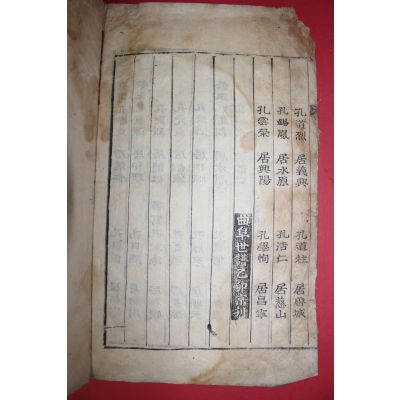 孔道烈 居義興 孔道柱 居
孔錫鳳 居水原 孔浩仁 居慈山
孔雲榮 居興陽 孔學恂 居昌寧
曲阜世譜乙卯